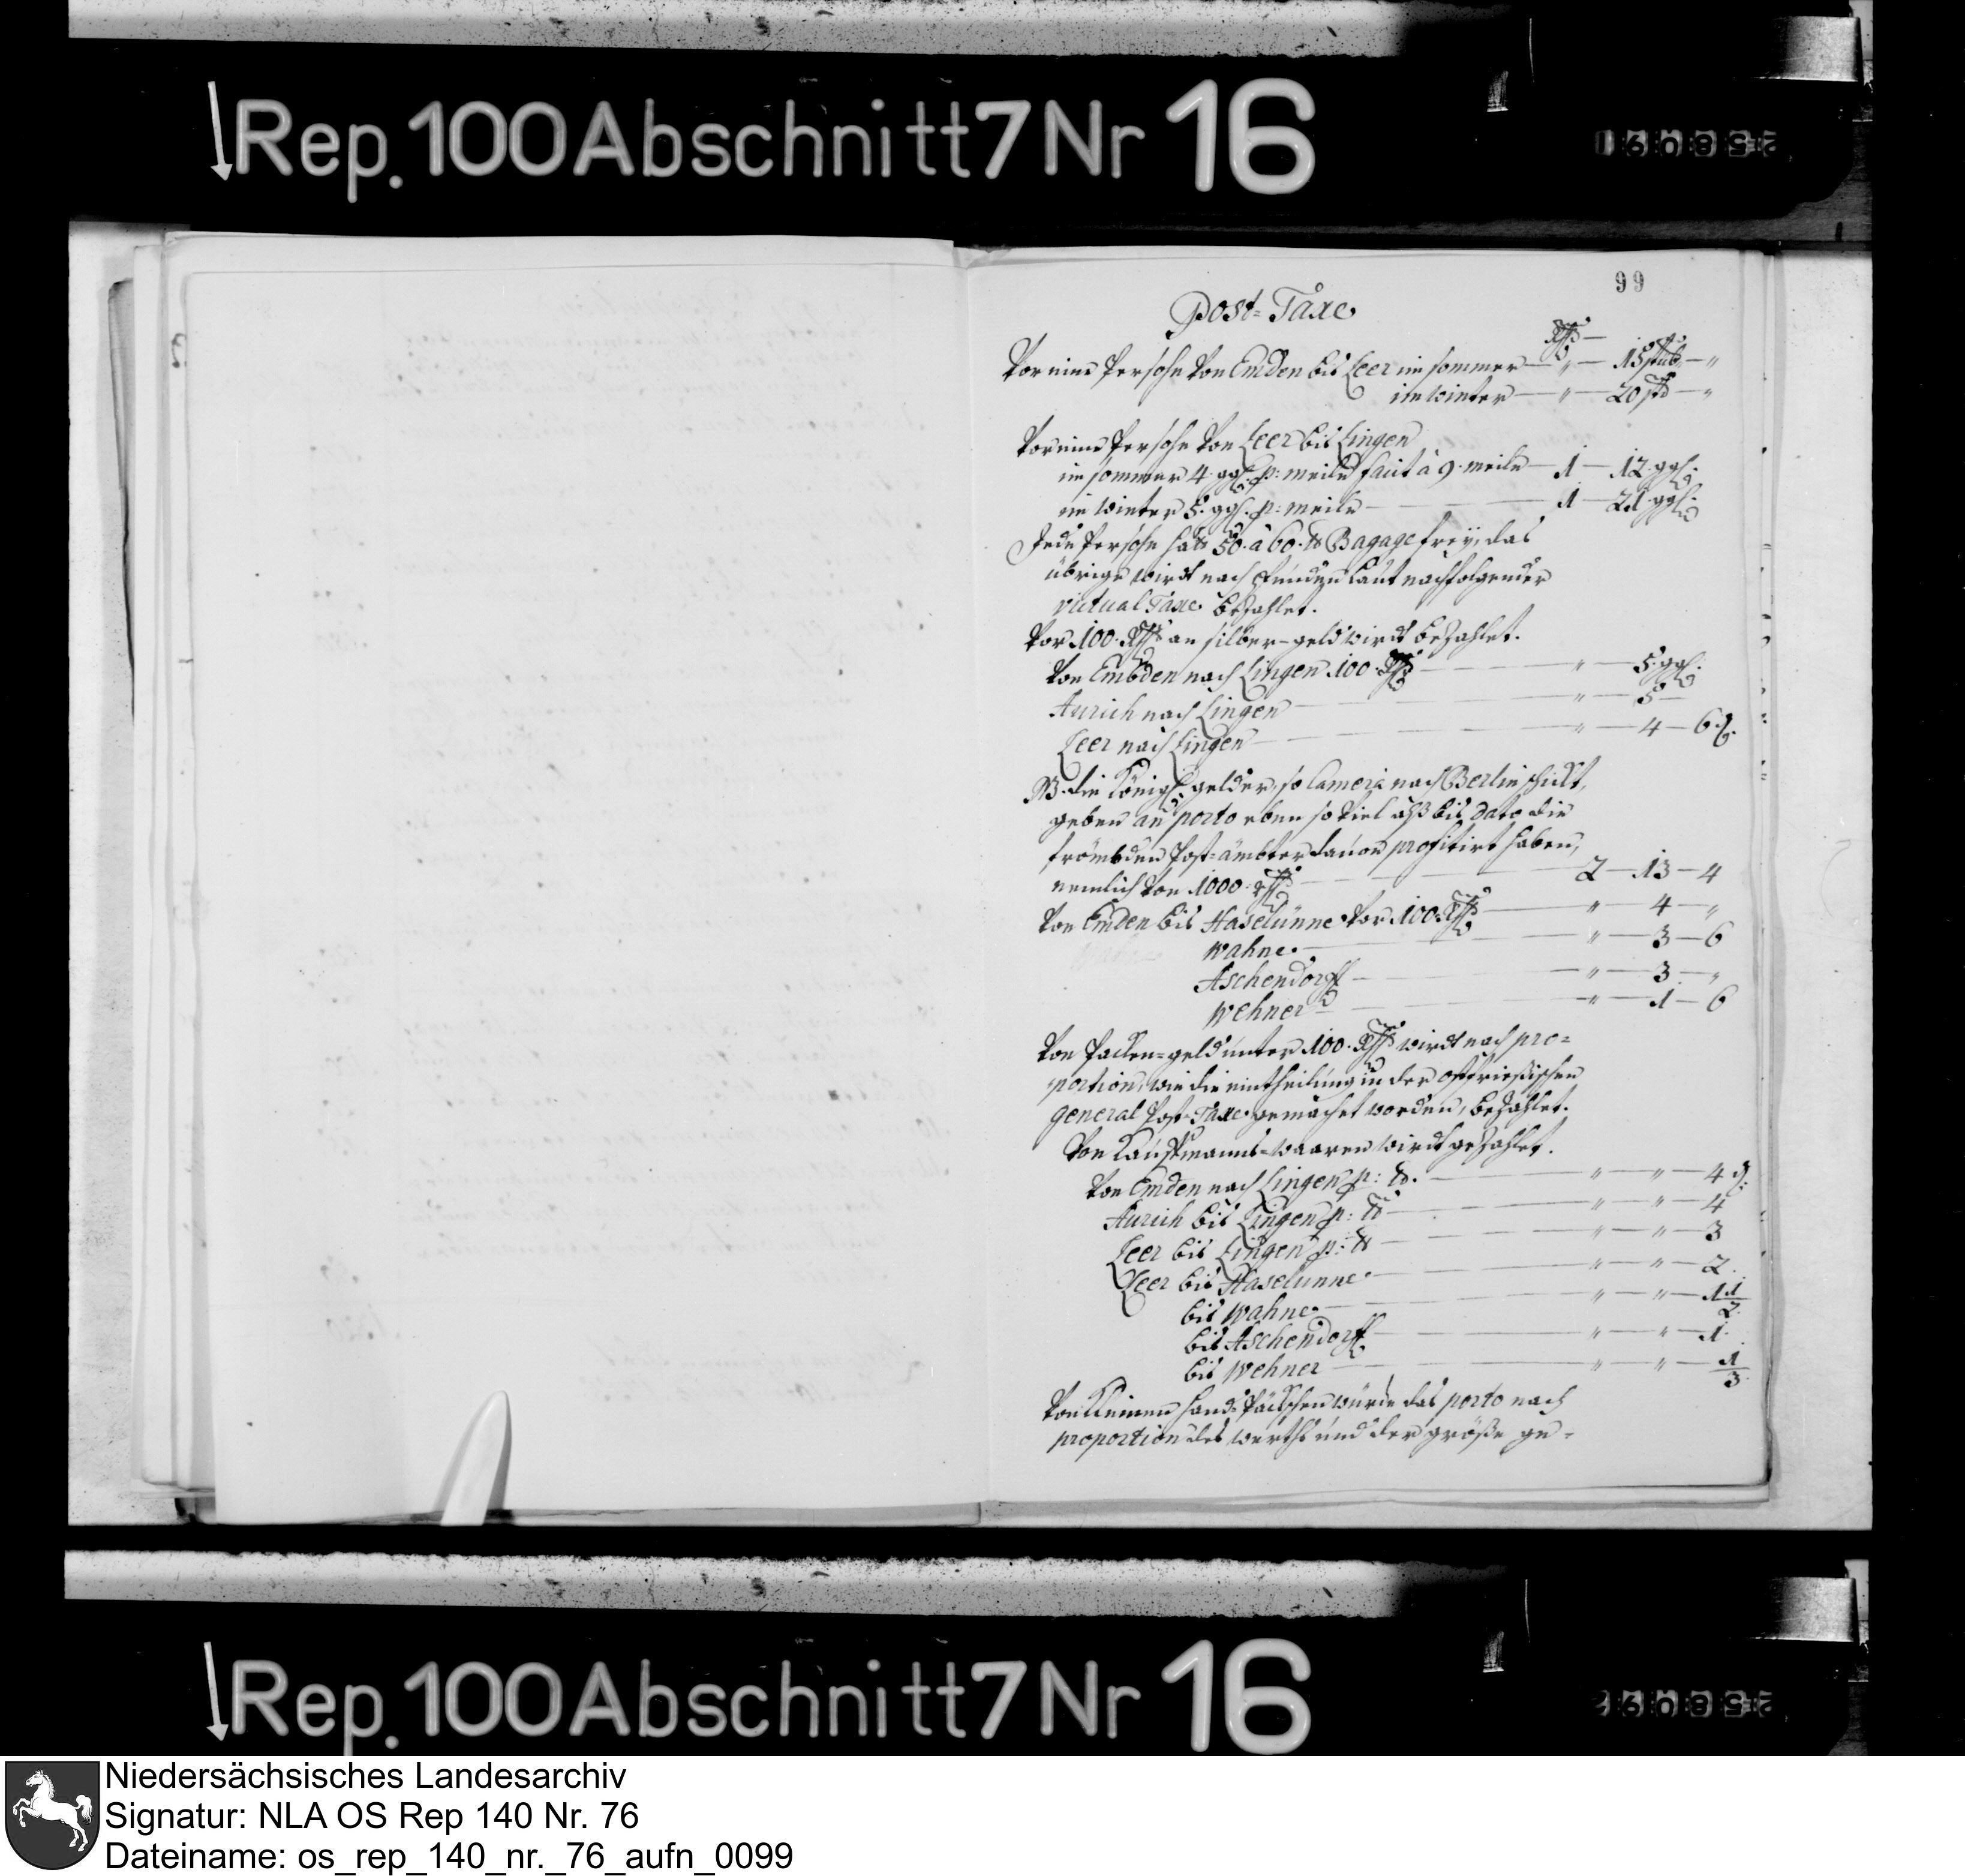 Rep. 100 Abschnitt 7 Nr 16
99
Post-Taxe
Rthlr
Vor eine Persohn von Emden bis Leer im sommer — " — 15 stüb — "
im winter — " — 20 stb — "
Vor eine Persohn von Leer bis Lingen
im sommer 4. ggl. p: meile facit à 9. meile — 1 — 12. ggl.
im winter 5. ggl. p: meile — 1 — 21. ggl.
Jede Persohn hatt 50. à 60. ℔ Bagage frey, das
übrige wirdt nach pfunden laut nachfolgender
victual Taxe bezahlet.
Vor 100. Rthlr an silber-geld wirdt bezahlet.
Von Embden nach Lingen 100. Rthlr — " — 5. ggl.
Aurich nach Lingen — " — 5 —
Leer nach Lingen — " — 4 — 6 ₰.
NB. die Königl. gelder, so Camera nach Berlin schickt,
geben an porto eben so viel alß bis dato die
frömbden Post-ämbter davon profitirt haben,
nemlich von 1000. Rthlr — 2 — 13 — 4
Von Emden bis Haselünne vor 100 Rthlr — " — 4 — "
Wahne. — " — 3 — 6
Aschendorff — " — 3 — "
Wehner — " — 1 — 6
Von Packen-geld unter 100. Rthlr wirdt nach pro-
portion, wie die eintheilung in der ostfrießischen
general Post-Taxe gemachet worden, bezahlet.
Von Kauffmanns-waaren wirdt gezahlet.
Von Emden nach Lingen p: ℔. — " — " — 4 ₰.
Aurich bis Lingen p: ℔ — " — " — 4
Leer bis Lingen p: ℔ — " — " — 3
Leer bis Haselunne — " — " — 2.
bis Wahne. — " — " — 1 1/2
bis Aschendorff — " — " — 1.
bis Wehner — " — " — 1/3
Von kleinen hand-Päckschen würde das porto nach
proportion des werths und der größe ge-
Rep. 100 Abschnitt 7 Nr 16
Niedersächsisches Landesarchiv
Signatur: NLA OS Rep 140 Nr. 76
Dateiname: os_rep_140_nr._76_aufn_0099